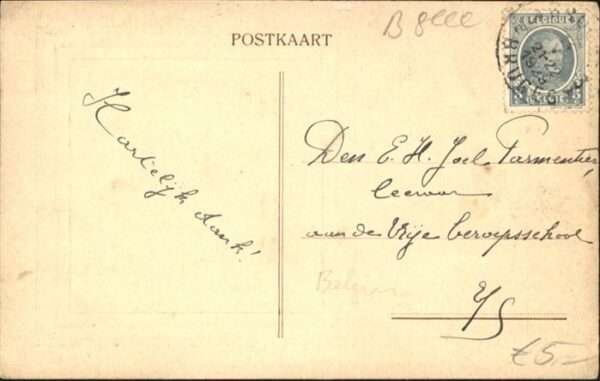 POSTKAART
B
BELGIQUE
BRUGGE
5
Hartelijk dank!
Den E. H. Joël Parmentier,
leeraar
aan de Vrije beroepsschool
Belgium
€5,-